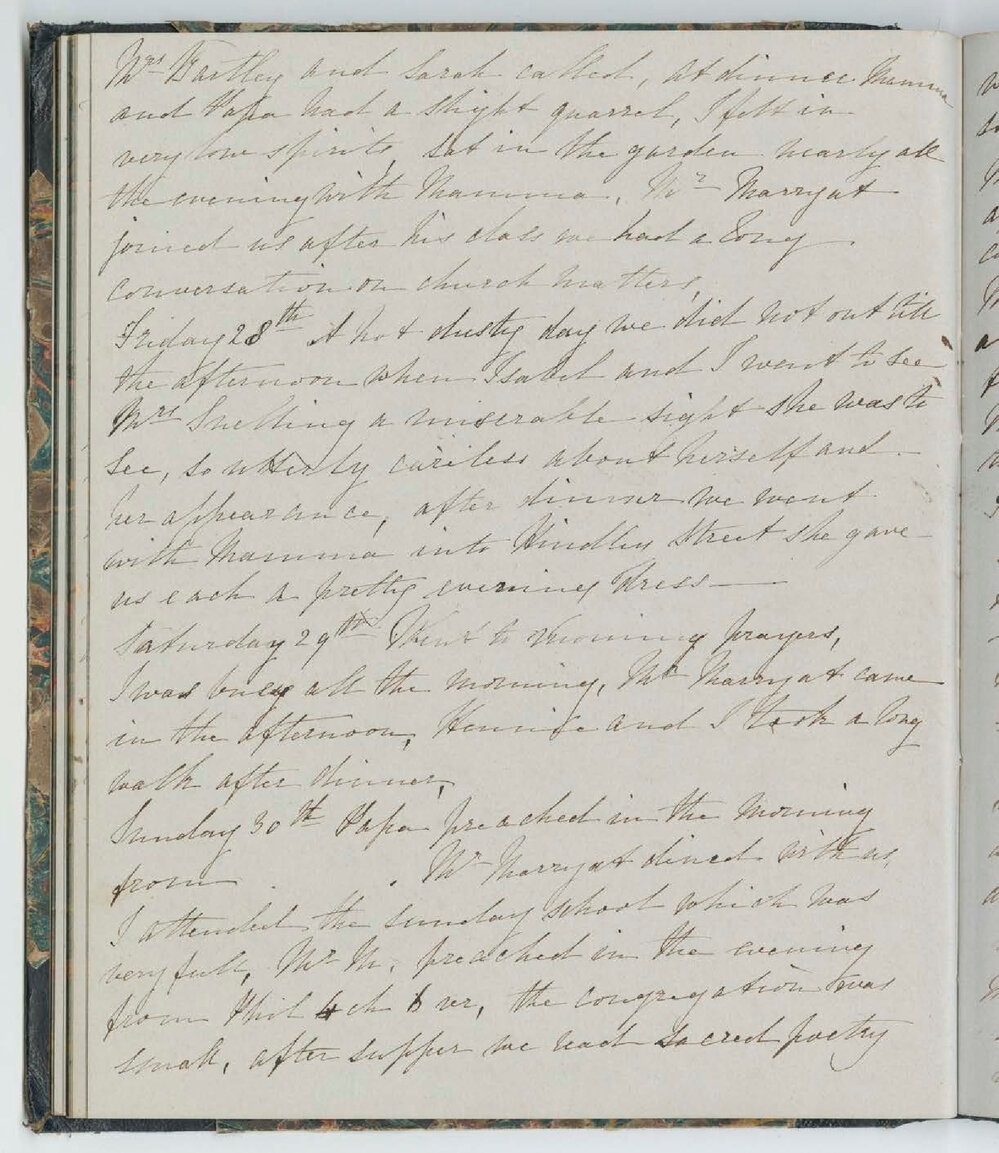 Mrs Bartley and Sarah called, at dinner Mamma
and Papa had a slight quarrel, I felt in
very low spirits, sat in the garden nearly all
the evening with Mamma, Mr Marryat
joined us after his class we had a long
conversation on church matters,
Friday 28th A hot dusty day we did not out till
the afternoon when Isabel and I went to see
Mrs Snelling a miserable sight she was to
see, so utterly careless about herself and
her appearance, after dinner we went
with Mamma into Hindley Street she gave
us each a pretty evening dress —
Saturday 29th Went to morning prayers,
I was busy all the morning, Mr Marryat came
in the afternoon, Hennie and I took a long
walk after dinner,
Sunday 30th Papa preached in the morning
from . Mr Marryat dined with us,
I attended the sunday school which was
very full, Mr M. preached in the evening
from Phil 4 ch ver, the congregation was
small, after supper we read sacred poetry